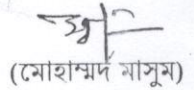 (মোহাম্মদ মাসুম)